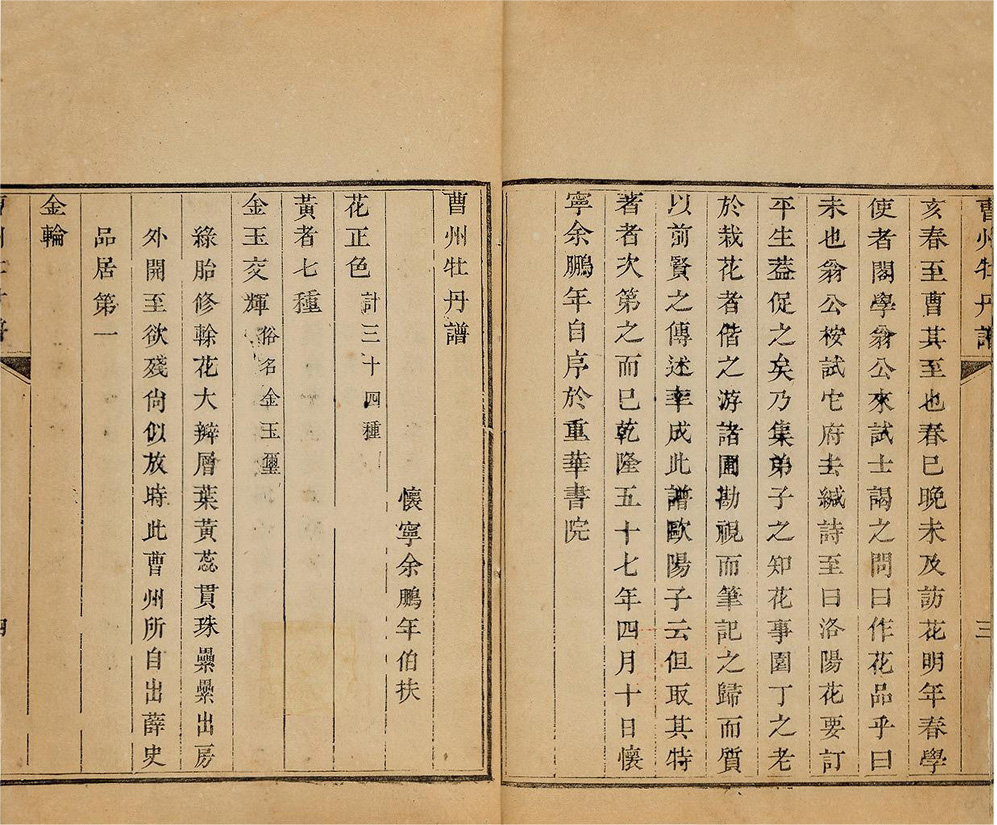 曹州牡丹譜
三
亥春至曹其至也春已晚未及訪花明年春學
使者閣學翁公來試士謁之問曰作花品乎曰
未也翁公桉試它府去緘詩至曰洛陽花要訂
平生葢促之矣乃集弟子之知花事園丁之老
於栽花者偕之游諸圃勘視而筆記之歸而質
以前賢之傳述率成此譜歐陽子云但取其特
著者次第之而已乾隆五十七年四月十日懷
寧余鵬年自序於重華書院
曹州牡丹譜
懷寧余鵬年伯扶
花正色 計三十四種
黃者七種
金玉交輝 俗名金玉璽
綠胎修榦花大瓣層葉黃蕊貫珠纍纍出房
外開至欲殘尙似放時此曹州所自出薛史
品居第一
金輪
四